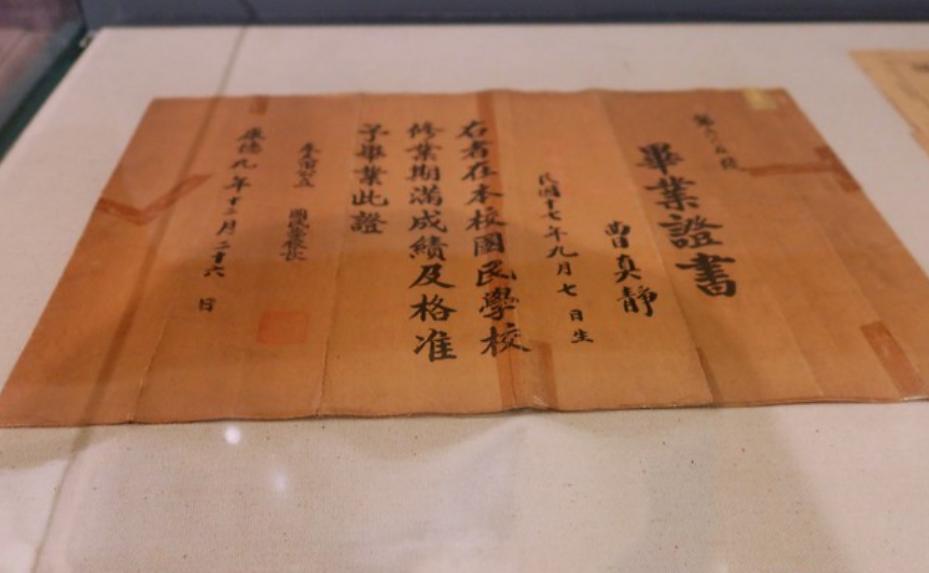 畢業證書
曺真靜
民國十七年九月七日生
右者在本校國民學校
修業期滿成績及格准
予畢業此證
國民學校長
康德九年十二月二十六日